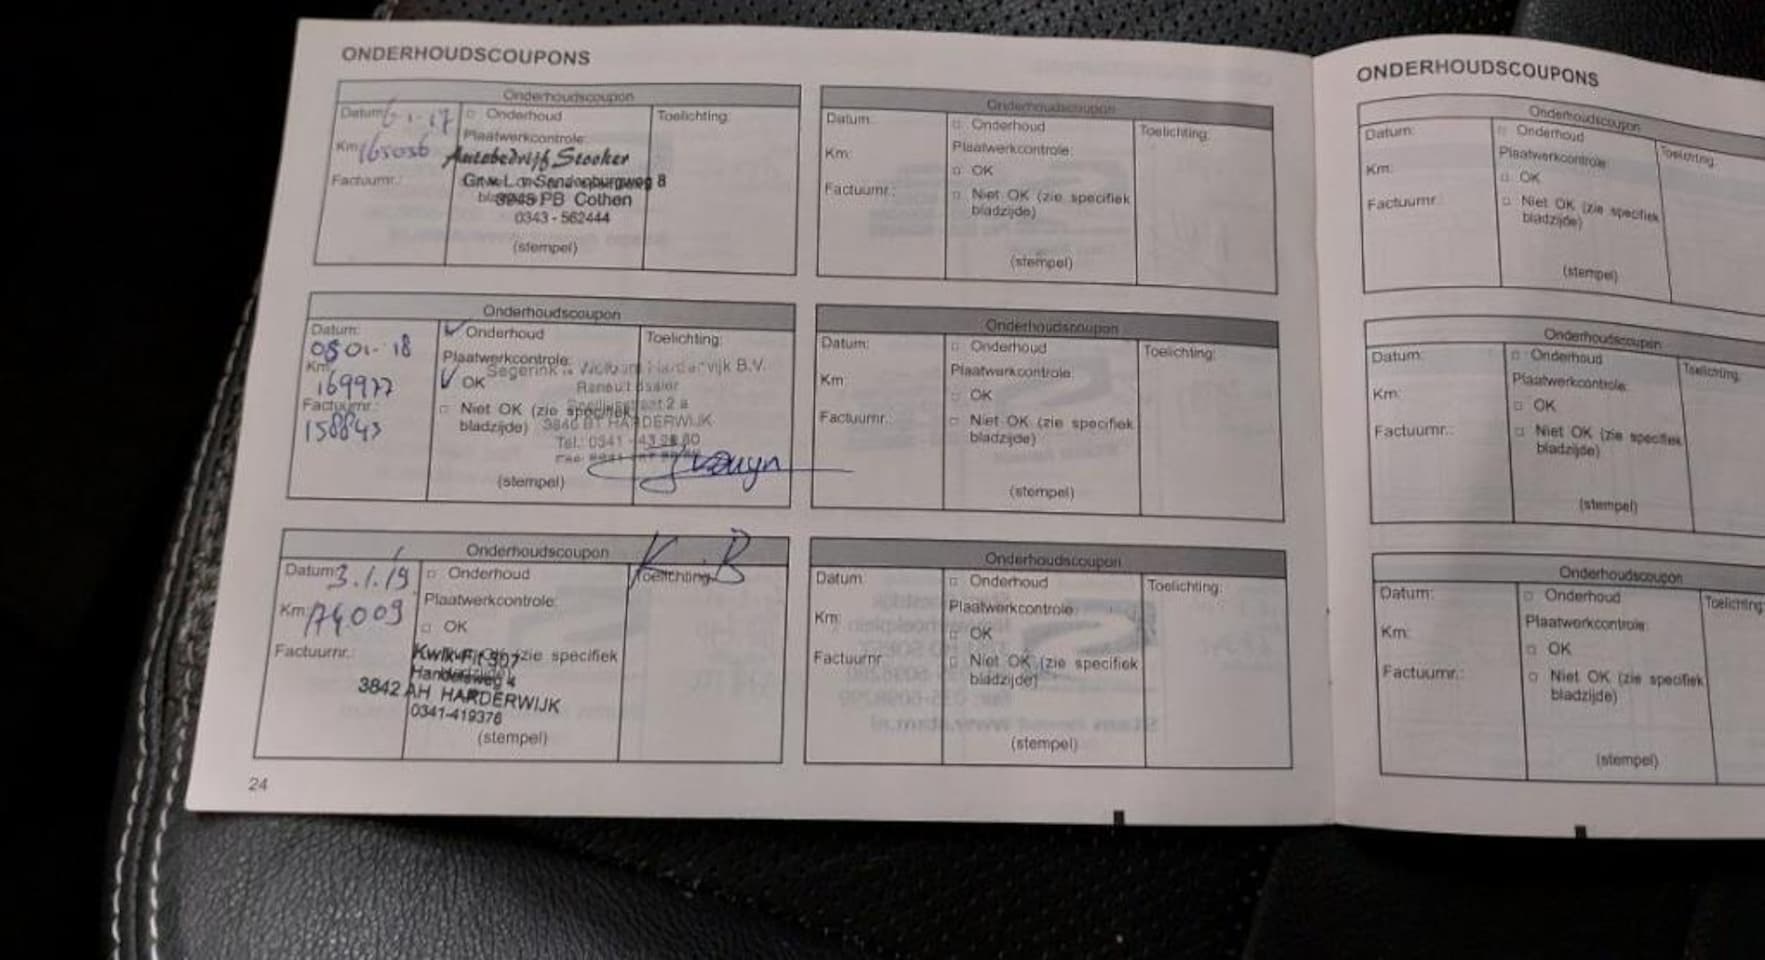 ONDERHOUDSCOUPONS
Onderhoudscoupon
Datum: 6-1-17
Onderhoud
Toelichting:
Plaatwerkcontrole:
Km: 165036
Autobedrijf Stooker
Factuurnr.:
Sandenburgweg 8
3945 PB Cothen
0343 - 562444
(stempel)
Onderhoudscoupon
Datum:
Onderhoud
Toelichting:
08-01-18
Plaatwerkcontrole:
Km:
OK
169977
Harderwijk B.V.
Factuurnr.:
Niet OK (zie specifiek
bladzijde)
158843
3846 BT HARDERWIJK
Tel.: 0341 -
(stempel)
Onderhoudscoupon
K.B
Datum: 3.1.19
Onderhoud
Toelichting:
Plaatwerkcontrole:
Km: 174.009
OK
Factuurnr.:
zie specifiek
Kwik-Fit 307
Handelsweg 4
3842 AH HARDERWIJK
0341-419376
(stempel)
24
Onderhoudscoupon
Datum:
Onderhoud
Toelichting:
Plaatwerkcontrole:
Km:
OK
Factuurnr.:
Niet OK (zie specifiek
bladzijde)
(stempel)
Onderhoudscoupon
Datum:
Onderhoud
Toelichting:
Plaatwerkcontrole:
Km:
OK
Factuurnr.:
Niet OK (zie specifiek
bladzijde)
(stempel)
Onderhoudscoupon
Datum:
Onderhoud
Toelichting:
Plaatwerkcontrole:
Km:
OK
Factuurnr.:
Niet OK (zie specifiek
bladzijde)
(stempel)
ONDERHOUDSCOUPONS
Onderhoudscoupon
Datum:
Onderhoud
Toelichting:
Plaatwerkcontrole:
Km:
OK
Factuurnr.:
Niet OK (zie specifiek
bladzijde)
(stempel)
Onderhoudscoupon
Datum:
Onderhoud
Toelichting:
Plaatwerkcontrole:
Km:
OK
Factuurnr.:
Niet OK (zie specifiek
bladzijde)
(stempel)
Onderhoudscoupon
Datum:
Onderhoud
Toelichting:
Plaatwerkcontrole:
Km:
OK
Factuurnr.:
Niet OK (zie specifiek
bladzijde)
(stempel)